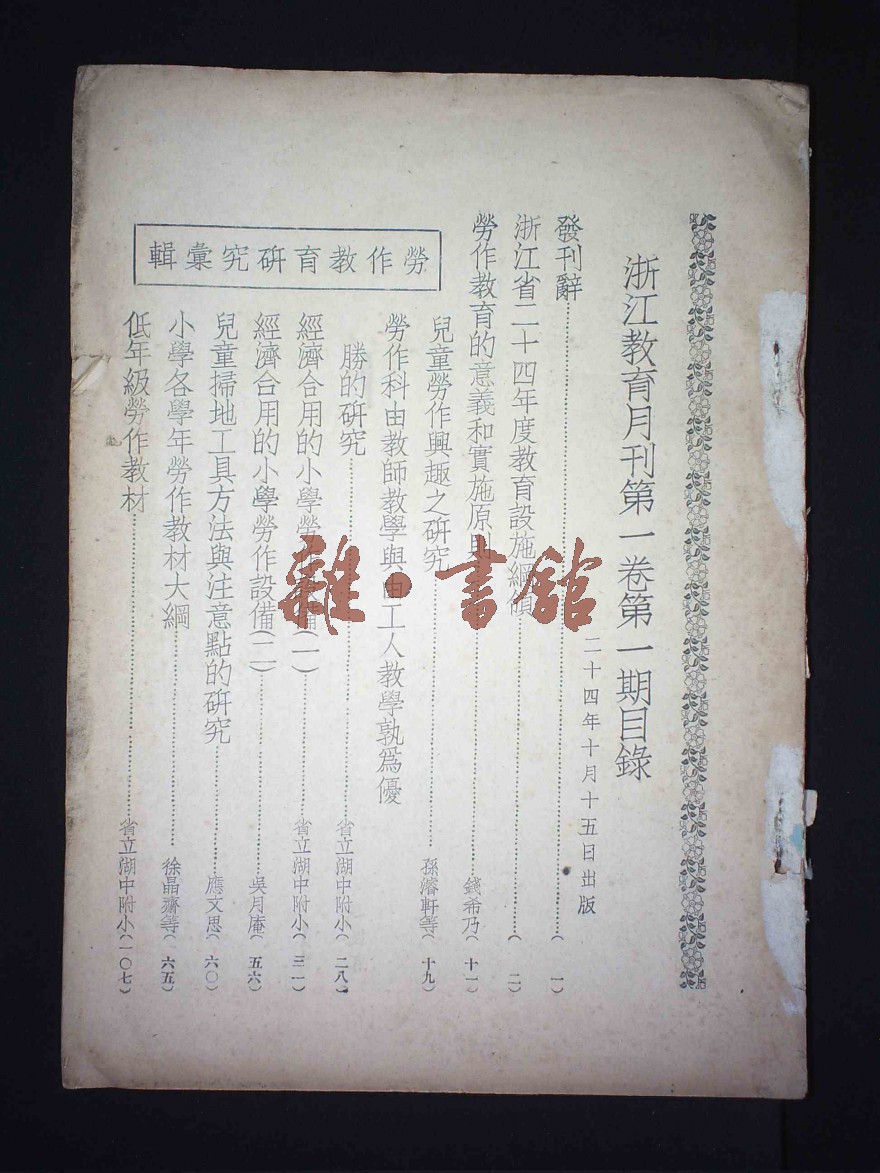 浙江教育月刊第一卷第一期目錄
二十四年十月十五日出版
發刊辭……（一）
浙江省二十四年度教育設施綱領……（二）
勞作教育的意義和實施原則……錢希乃（十一）
勞作教育研究彙輯
兒童勞作興趣之研究……孫濬軒等（十九）
勞作科由教師教學與由工人教學孰爲優
勝的研究……省立湖中附小（二八）
經濟合用的小學勞作設備（一）……省立湖中附小（三一）
經濟合用的小學勞作設備（二）……吳月庵（五六）
兒童掃地工具方法與注意點的研究……應文思（六〇）
小學各學年勞作教材大綱……徐晶齋等（六五）
低年級勞作教材……省立湖中附小（一〇七）
雜·書舘